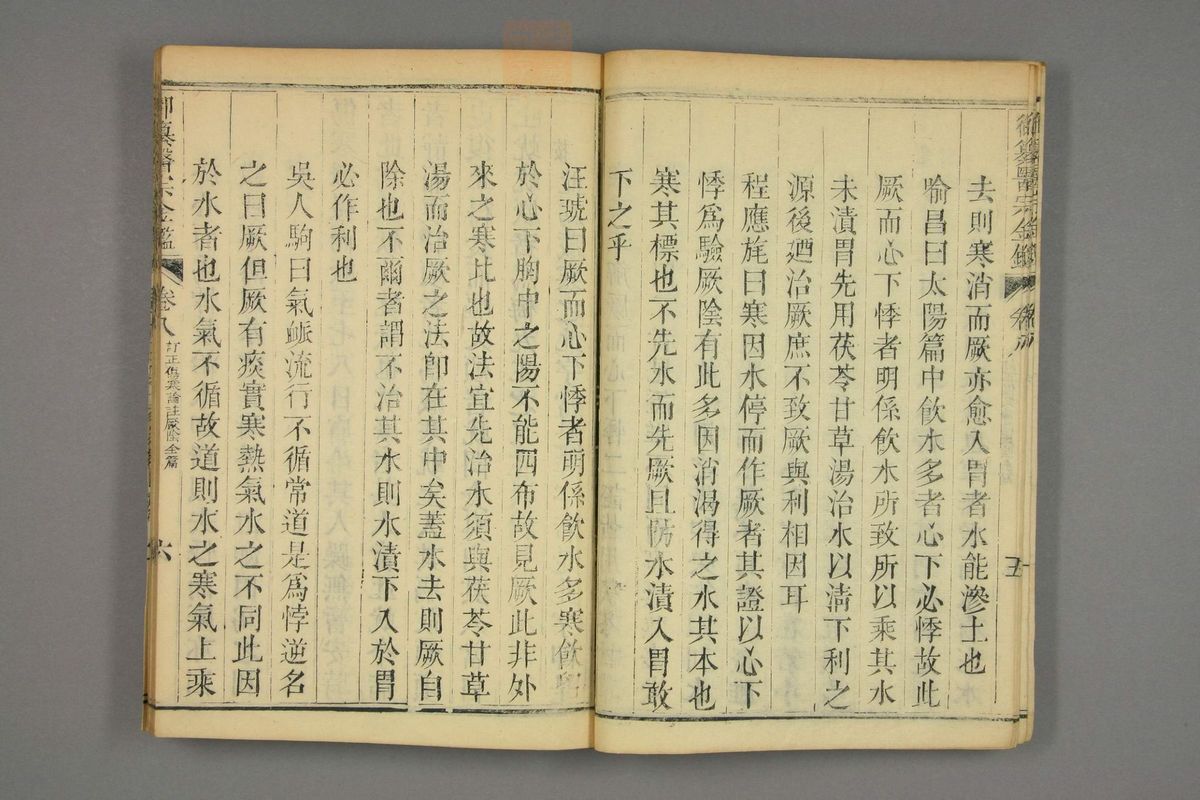 御纂醫宗金鑑
五
去則寒消而厥亦愈入胃者水能滲土也
喻昌曰太陽篇中飲水多者心下必悸故此
厥而心下悸者明係飲水所致所以乘其水
未漬胃先用茯苓甘草湯治水以清下利之
源後廼治厥庶不致厥與利相因耳
程應旄曰寒因水停而作厥者其證以心下
悸爲驗厥陰有此多因消渴得之水其本也
寒其標也不先水而先厥且防水漬入胃敢
下之乎
汪琥曰厥而心下悸者明係飲水多寒飲
於心下胸中之陽不能四布故見厥此非外
來之寒比也故法宜先治水須與茯苓甘草
湯而治厥之法即在其中矣蓋水去則厥自
除也不爾者謂不治其水則水漬下入於胃
必作利也
吳人駒曰氣脈流行不循常道是爲悖逆名
之曰厥但厥有痰實寒熱氣水之不同此因
於水者也水氣不循故道則水之寒氣上乘
御纂醫宗金鑑
卷八 訂正傷寒論註厥陰全篇
六